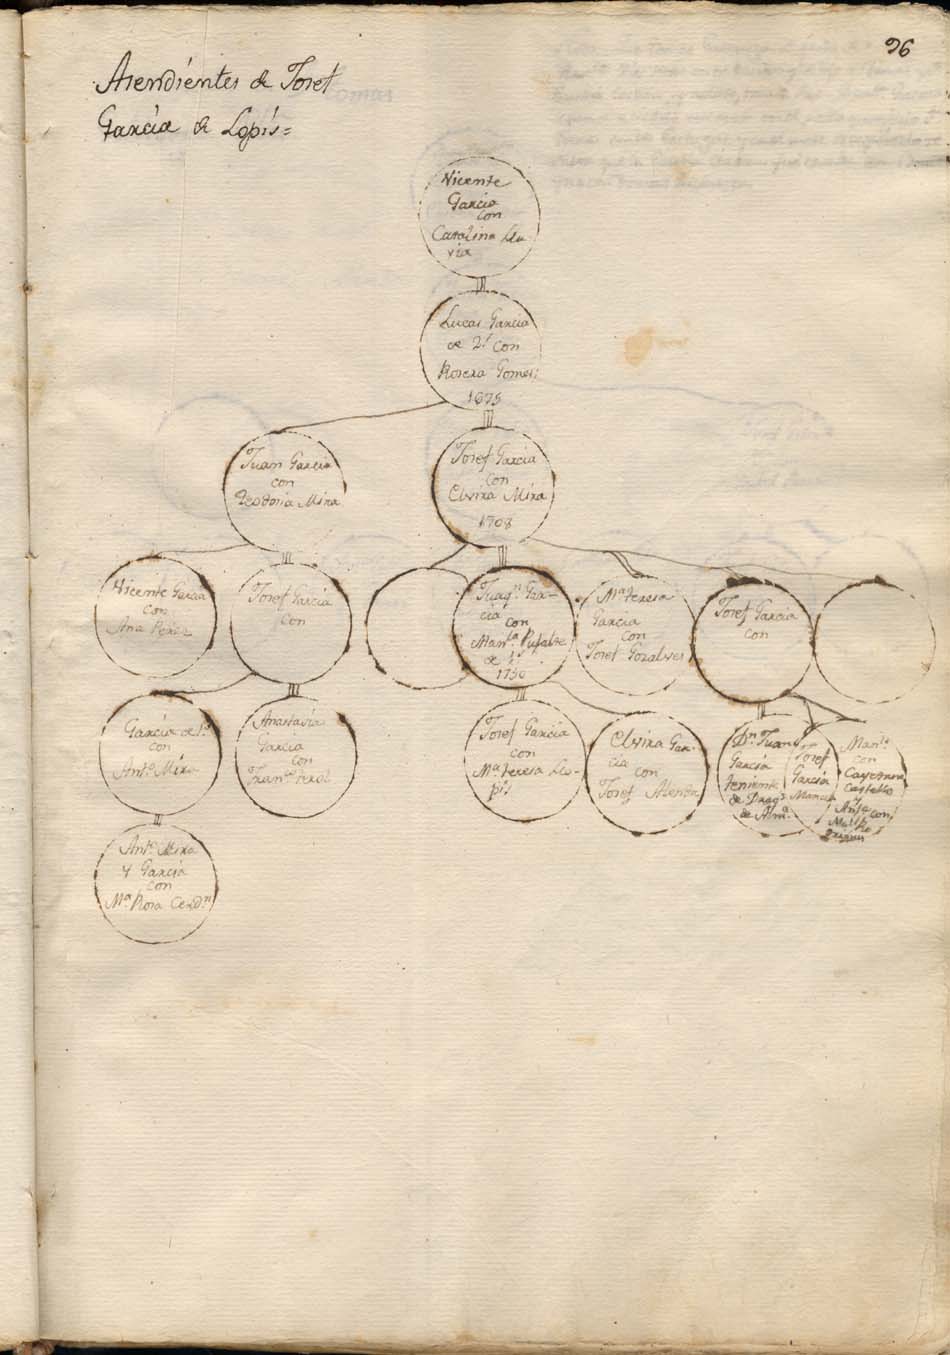 96
Asendientes de Josef
Garcia de Lopis=
Vicente
Garcia
con
Catalina Llu
via
Lucas Garcia
de 2.ˢ con
Rosera Gomes:
1675
Juan Garcia
con
Teodoria Mira
Josef Garcia
con
Elvira Mira
1708
Vicente Garcia
con
Ana Perez
Josef Garcia
con
Juaqⁿ Gar-
cia
con
Manˡᵃ
de 1.ˢ
1750
Mᵃ teresa
Garcia
con
Josef Gozalves
Josef Garcia
con
Garcia de 1ˢ
con
Antᵃ Mira
Anastasia
Garcia
con
Franᶜᵒ Perol
Josef Garcia
con
Mᵃ teresa Lo-
pis
Elvira Gar-
cia
con
Josef Alenda
Dⁿ Juan
Garcia
teniente
de Dragˢ
de Almᵃ
Josef
Garcia
Manˡᵃ
con
Cayetano
Castello
y
con
Antᵒ Mira
y Garcia
con
Mᵃ Rosa Cerdⁿ